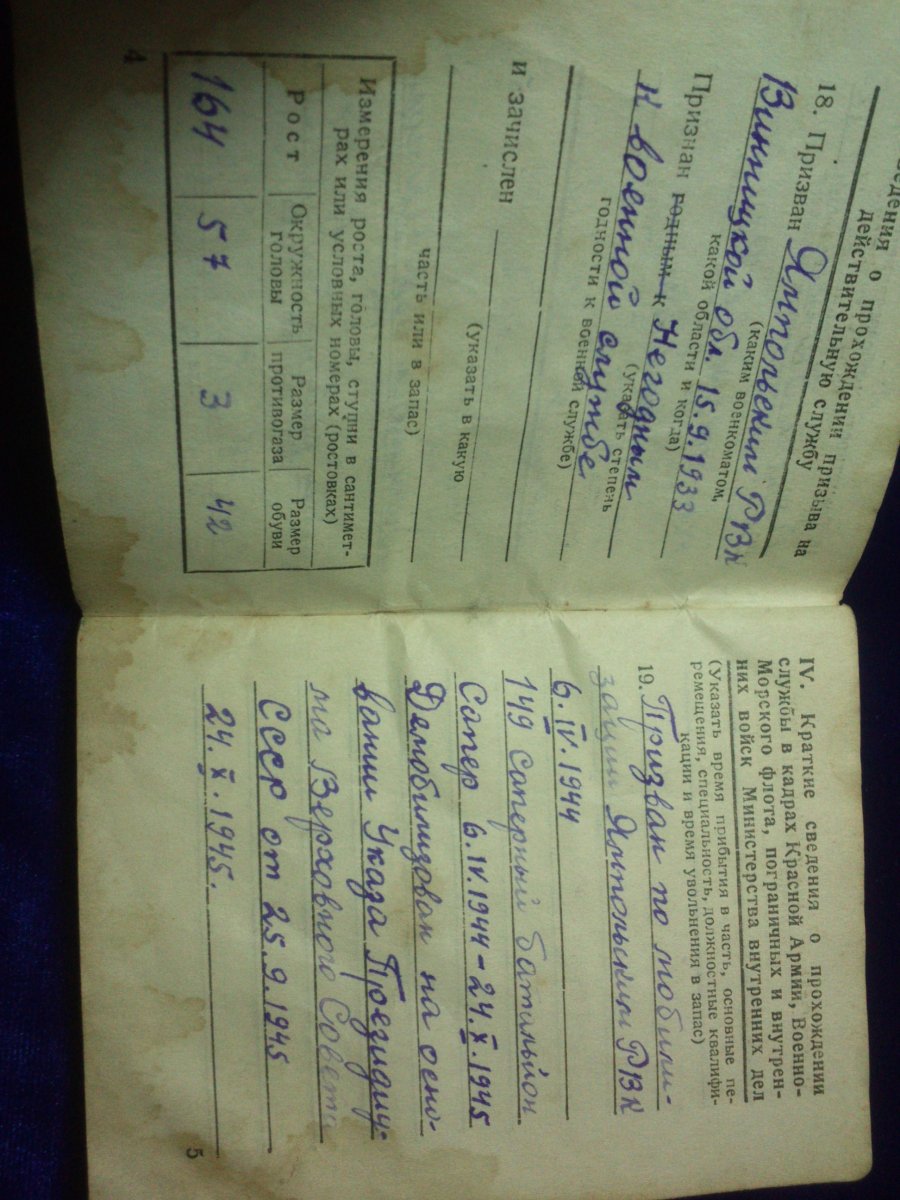 ведения о прохождении призыва на
действительную службу
18. Призван Ямпольским РВК
(каким военкоматом,
Винницкой обл. 15.9.1933
какой области и когда)
Признан годным к Негодным
(указать степень
к военной службе
годности к военной службе)
и зачислен
(указать в какую
часть или в запас)
Измерения роста, головы, ступни в сантимет-
рах или условных номерах (ростовках)
Рост
Окружность
головы
Размер
противогаза
Размер
обуви
164 57 3 42
4
IV. Краткие сведения о прохождении
службы в кадрах Красной Армии, Военно-
Морского флота, пограничных и внутрен-
них войск Министерства внутренних дел
(Указать время прибытия в часть, основные пе-
ремещения, специальность, должностные квалифи-
кации и время увольнения в запас)
19. Призван по мобили-
зации Ямпольским РВК
6.IV.1944
149 саперный батальйон
Сапер 6.IV.1944-24.X.1945
Демобилизован на осно-
вании Указа Президиу-
ма Верховного Совета
СССР от 25.9.1945
24.X.1945.
5